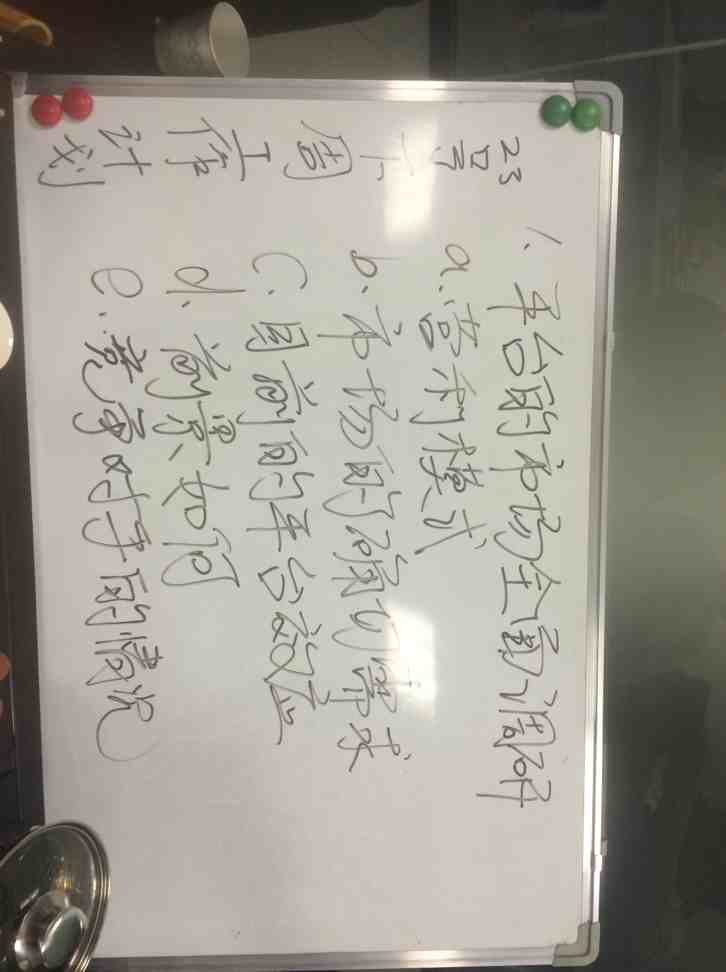 23号下周工作计划
1. 平台的市场全面调研
a. 营利模式
b. 市场的确切需求
c. 目前的平台效应
d. 前景如何
e. 竞争对手的情况